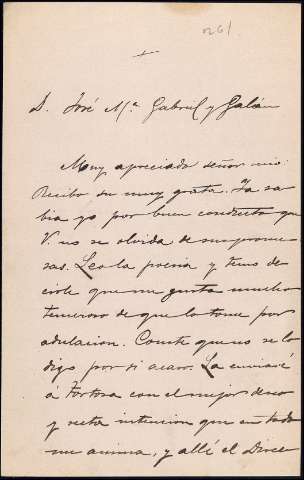 261
+
D. José Mª Gabriel y Galán
Muy apreciado señor mio:
Recibo su muy grata. Ya sa
bia yo por buen conducto que
V. no se olvida de sus prome
sas. Leo la poesia y temo de
cirle que me gusta mucho
temeroso de que lo tome por
adulacion. Conste que no se lo
digo por si acaso. La enviaré
á Tortosa con el mejor deseo
y recta intencion que en todo
me anima, y allí el Direc